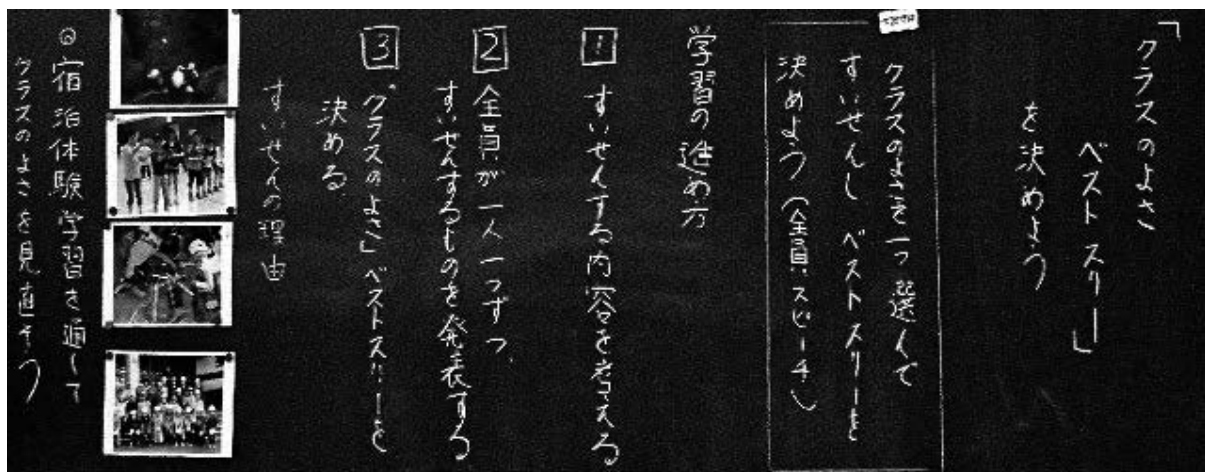 「クラスのよさ
ベストスリー」
を決めよう
クラスのよさを一つ選んで
すいせんし ベストスリーを
決めよう(全員スピーチ)
学習の進め方
1 すいせんする内容を考える
2 全員が一人一つずつ、
すいせんするものを発表する
3 「クラスのよさ」ベストスリーを
決める
すいせんの理由
◎宿泊体験学習を通して
クラスのよさを見直そう